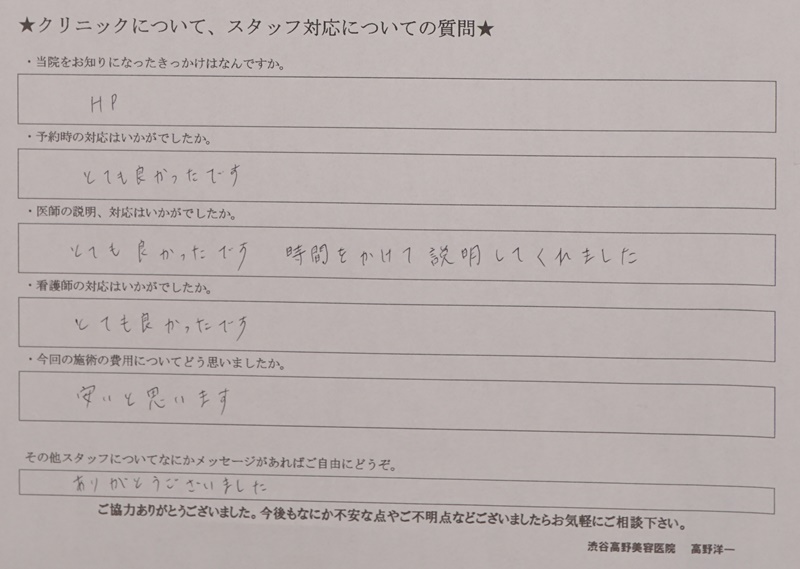 ★クリニックについて、スタッフ対応についての質問★
・当院をお知りになったきっかけはなんですか。
HP
・予約時の対応はいかがでしたか。
とても良かったです
・医師の説明、対応はいかがでしたか。
とても良かったです 時間をかけて説明してくれました
・看護師の対応はいかがでしたか。
とても良かったです
・今回の施術の費用についてどう思いましたか。
安いと思います
その他スタッフについてなにかメッセージがあればご自由にどうぞ。
ありがとうございました
ご協力ありがとうございました。今後もなにか不安な点やご不明点などございましたらお気軽にご相談下さい。
渋谷高野美容医院 高野洋一